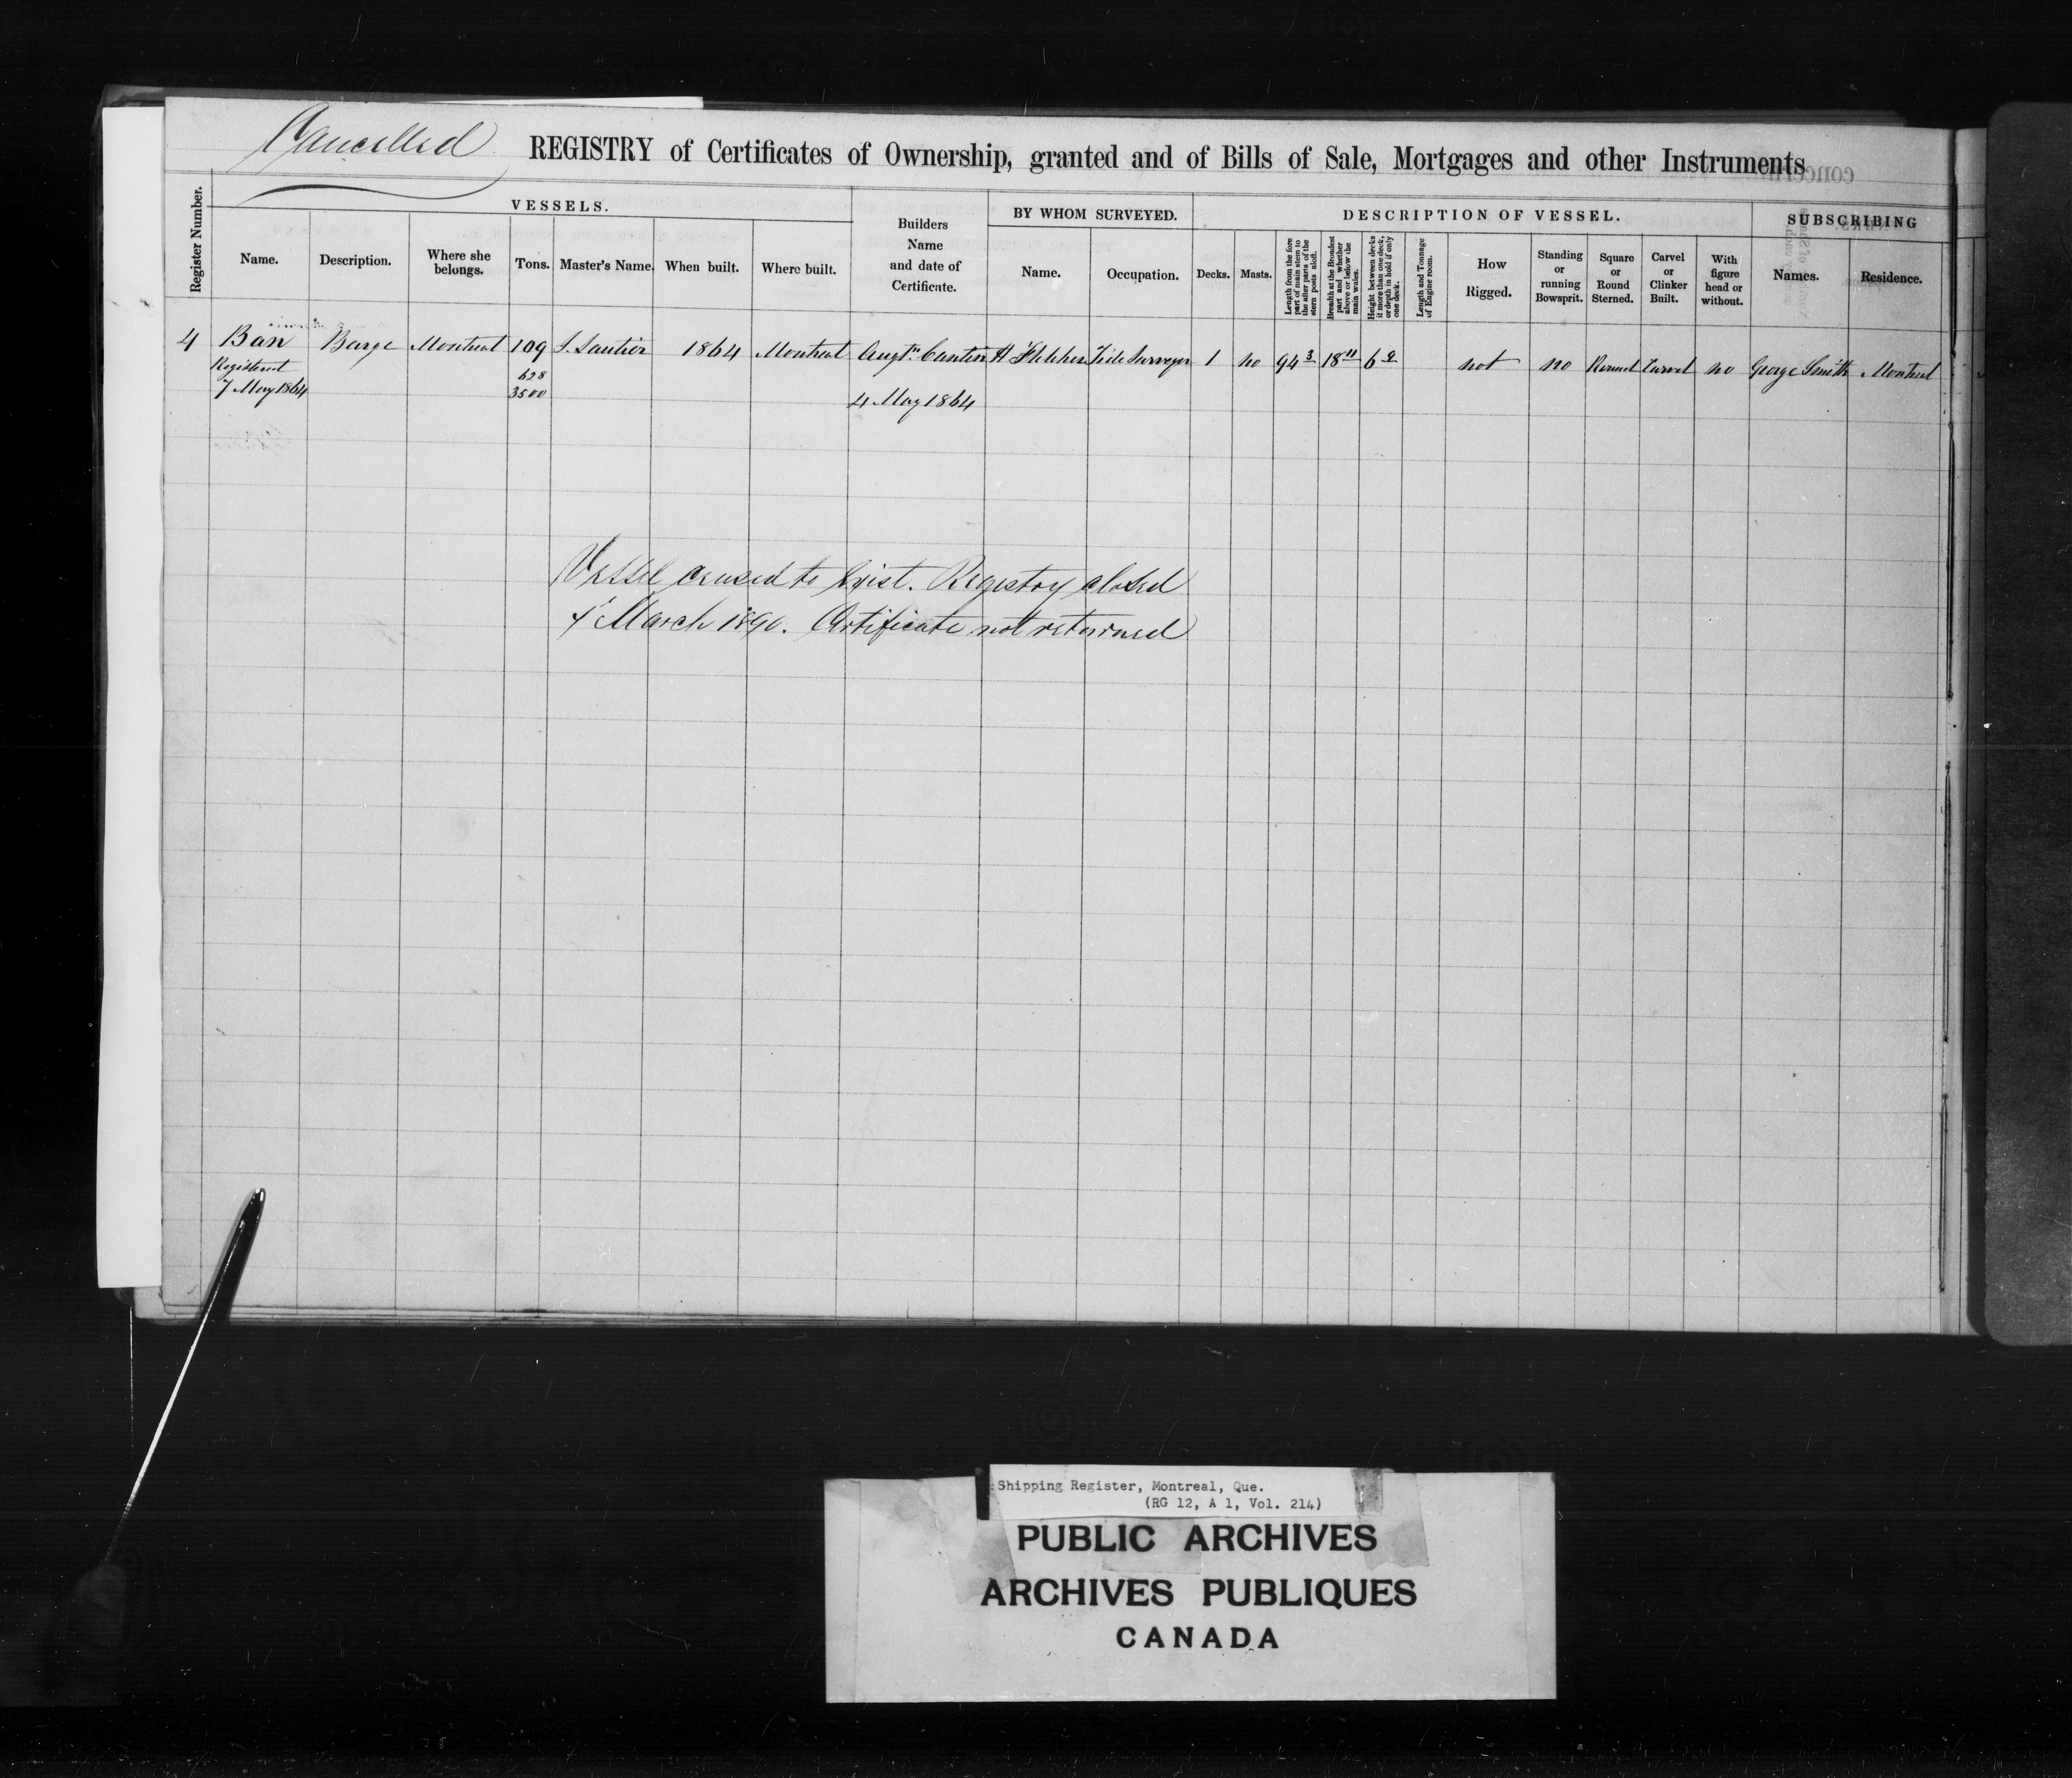 Cancelled
REGISTRY of Certificates of Ownership, granted and of Bills of Sale, Mortgages and other Instruments
Register Number.
VESSELS.
Name.
Description.
Where she belongs.
Tons.
Master's Name.
When built.
Where built.
Builders Name and date of Certificate.
BY WHOM SURVEYED.
Name.
Occupation.
DESCRIPTION OF VESSEL.
Decks.
Masts.
Length from the fore part of main stem to the after parts of the stern posts aloft.
Breadth at the Broadest part and whether above or below the main wales.
Height between decks if more than one deck, or depth in hold if only one deck.
Length and Tonnage of Engine room.
How Rigged.
Standing or running Bowsprit.
Square or Round Sterned.
Carvel or Clinker Built.
With figure head or without.
SUBSCRIBING
Names.
Residence.
4 Ban Barge Montreal 109 1864 Montreal Augtn Cantin H Fletcher Tide Surveyor 1 no 94 3 18 11 6 2 not no Round Carvel no George Smith Montreal
Registered 628
7 May 1864 3500 4 May 1864
Vessel ceased to exist. Registry closed
March 1890. Certificate not returned
Shipping Register, Montreal, Que.
(RG 12, A 1, Vol. 214)
PUBLIC ARCHIVES
ARCHIVES PUBLIQUES
CANADA